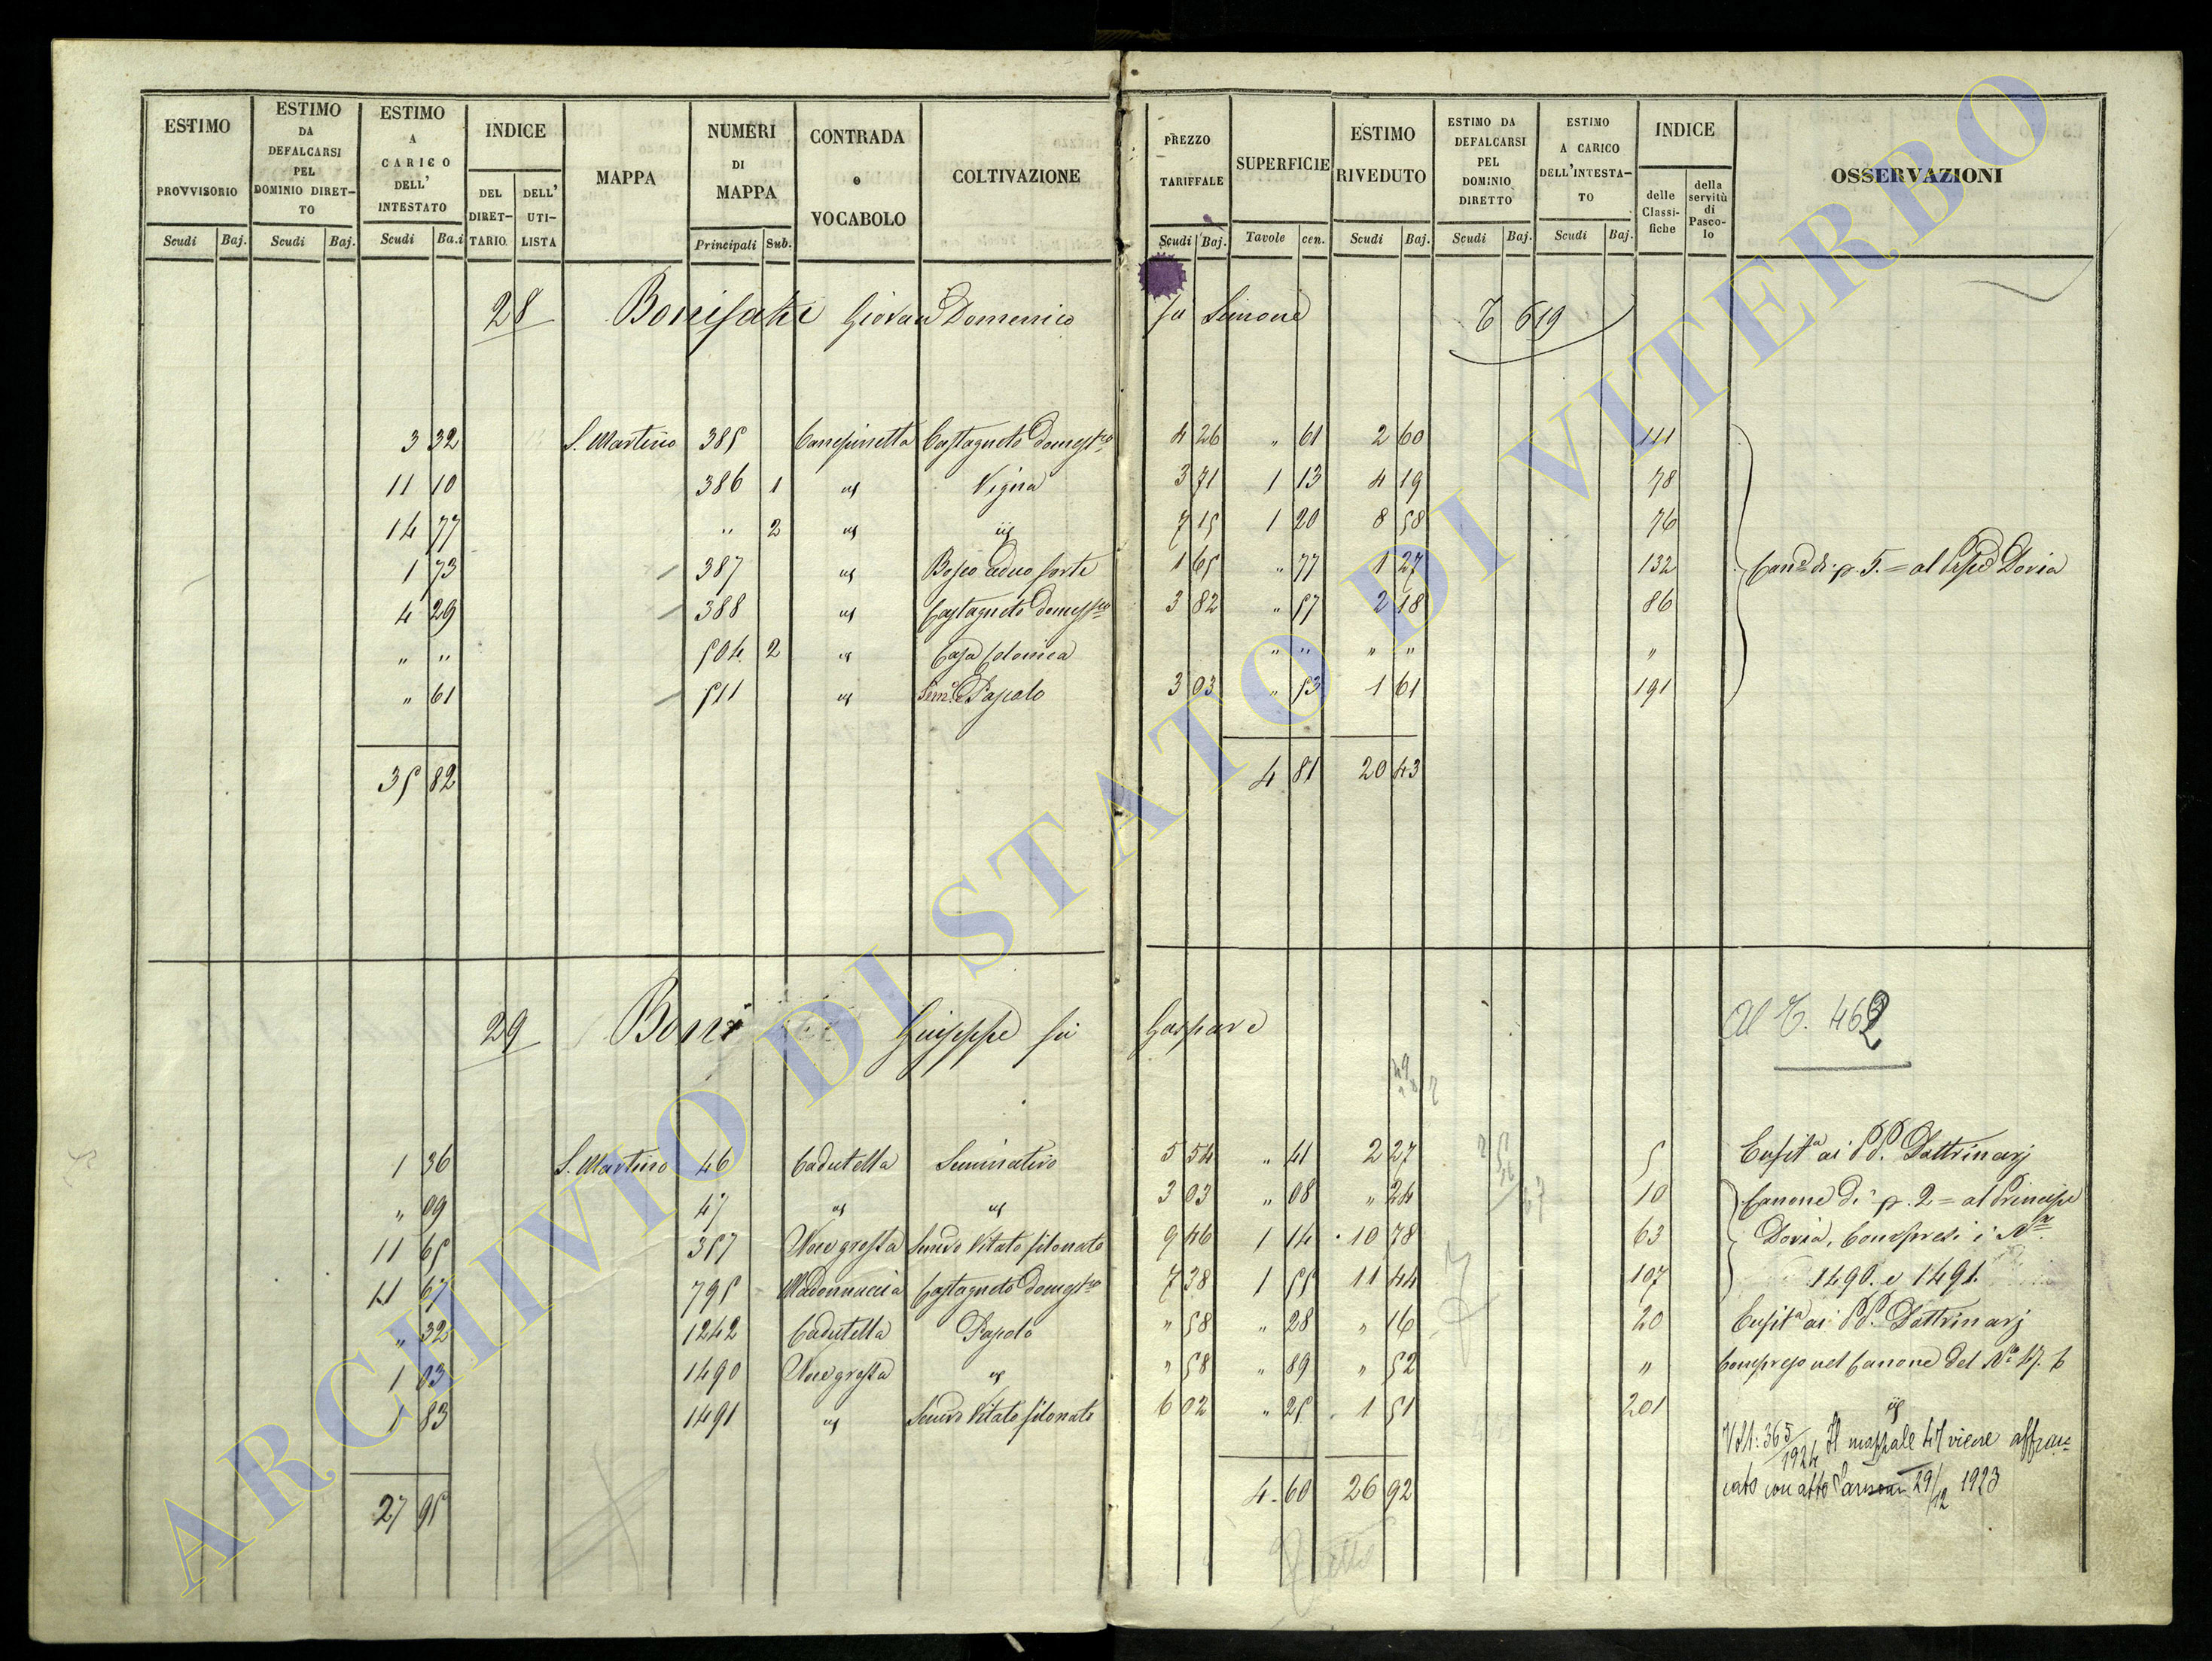 ESTIMO PROVVISORIO Scudi Baj. | ESTIMO DA DEFALCARSI PEL DOMINIO DIRET-TO Scudi Baj. | ESTIMO A CARICO DELL' INTESTATO Scudi Ba.i | INDICE DEL DIRET-TARIO. DELL' UTI-LISTA | MAPPA | NUMERI DI MAPPA Principali Sub. | CONTRADA o VOCABOLO | COLTIVAZIONE | PREZZO TARIFFALE Scudi Baj. | SUPERFICIE Tavole cen. | ESTIMO RIVEDUTO Scudi Baj. | ESTIMO DA DEFALCARSI PEL DOMINIO DIRETTO Scudi Baj. | ESTIMO A CARICO DELL'INTESTA-TO Scudi Baj. | INDICE delle Classi-fiche della servitù di Pasco-lo | OSSERVAZIONI
28 Giovan Domenico fu Simone 619
3 32 S. Martino 385 Canepinetta Castagneto domestco 4 26 " 61 2 60 111
11 10 386 1 id Vigna 3 71 1 13 4 19 78
14 77 " 2 id id 7 15 1 20 8 58 76
1 73 387 id Bosco ceduo forte 1 65 " 77 1 27 132 Cane di p. 5. = al Doria
4 29 388 id Castagneto domestco 3 82 " 57 2 18 86
" " 504 2 id Casa Colonica " " " " "
" 61 511 id Semo Pascolo 3 03 " 53 1 61 191
35 82 4 81 20 43
29 Boni Giuseppe fu Gaspare Al 462
1 36 S. Martino 46 Cadutella Seminativo 5 54 " 41 2 27 5 Enfita ai PP. Dottrinarj
" 09 47 id id 3 03 " 08 " 24 10 Canone di p. 2 = al Principe
11 65 357 Noce grossa Semivo Vitato 9 46 1 14 10 78 63 Doria, Compresi i Nri
11 67 795 Madonnuccia Castagneto domestco 7 38 1 55 11 44 107 1490. e 1491.
" 32 1242 Cadutella Pascolo " 58 " 28 " 16 20 Enfita ai PP. Dottrinarj
1 03 1490 Noce grossa id " 58 " 89 " 52 " Compreso nel Canone del No 47.
1 83 1491 id Semivo Vitato 6 02 " 25 1 51 201 id
365/1924 Il mappale 47 viene affran=
27 95 4.60 26 92 cato con atto 29/12 1923
ARCHIVIO DI STATO DI VITERBO